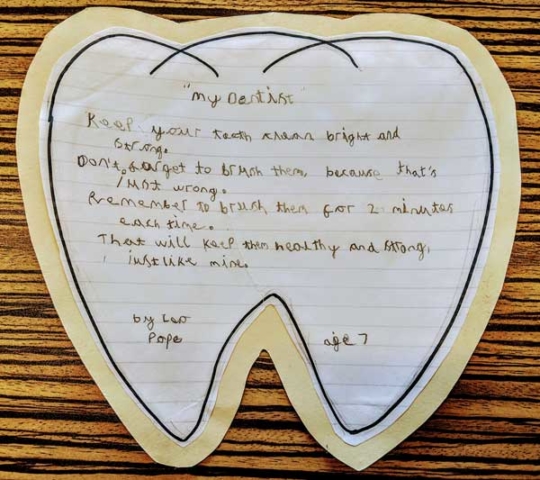 "my Dentist
Keep your teeth clean bright and
strong.
Don't forget to brush them, because that's
just wrong.
Remember to brush them for 2 minutes
each time.
That will keep them healthy and strong,
just like mine.
by Leo
Pope
age 7